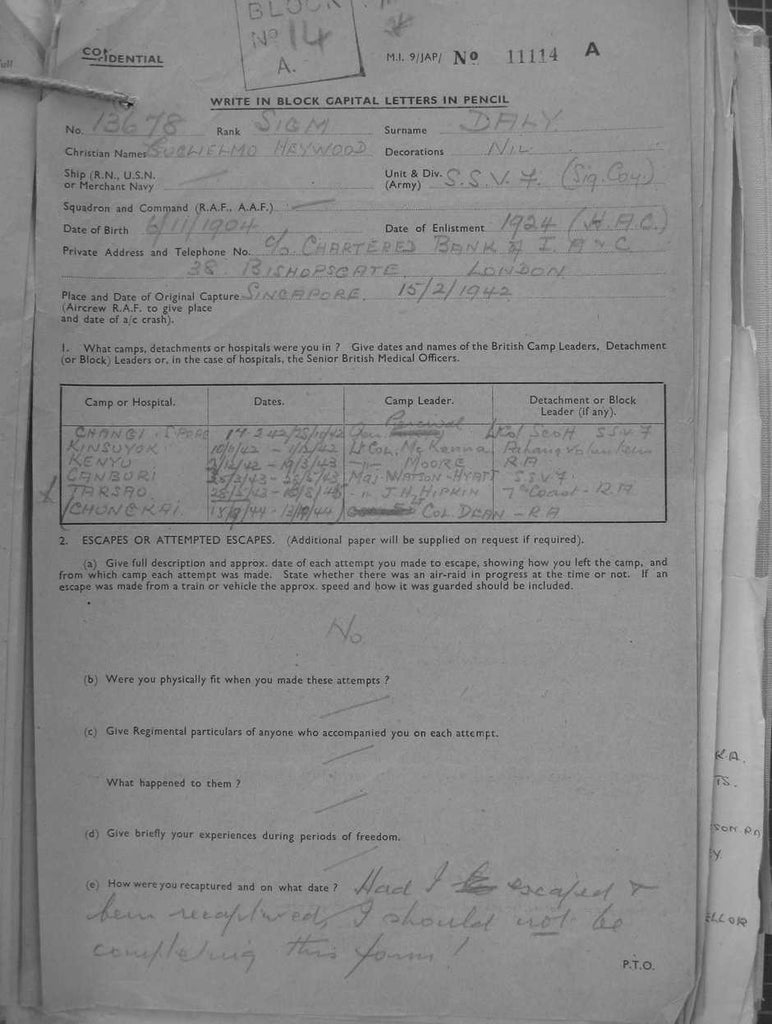 BLOCK
No 14
A.
CONFIDENTIAL
M.I. 9/JAP/ No 11114 A
WRITE IN BLOCK CAPITAL LETTERS IN PENCIL
No. 13678 Rank SIGM Surname DALY
Christian Names GUGLIELMO HEYWOOD Decorations NIL
Ship (R.N., U.S.N. or Merchant Navy
Unit & Div. (Army) S.S.V.F. (Sig. Coy)
Squadron and Command (R.A.F., A.A.F.)
Date of Birth 6/11/1904 Date of Enlistment 1924 (H.A.C.)
Private Address and Telephone No. c/o CHARTERED BANK of I. A & C
38 BISHOPSGATE LONDON
Place and Date of Original Capture SINGAPORE. 15/2/1942
(Aircrew R.A.F. to give place
and date of a/c crash).
1. What camps, detachments or hospitals were you in ? Give dates and names of the British Camp Leaders, Detachment
(or Block) Leaders or, in the case of hospitals, the Senior British Medical Officers.
Camp or Hospital. Dates. Camp Leader. Detachment or Block Leader (if any).
CHANGI, S'PORE Gen. Percival Lt Col Scott S.S.V.F
KINSUYOK Lt Col. McKenna Pahang Volunteers
KENYU - 19/3/43 -"- MOORE R.A
CANBURI Maj. WATSON-HYATT S.S.V.F.
TARSAO -"- J.H. HIPKIN 7th Coast - R.A
CHUNGKAI. 18/9/44 - Col. DEAN - R.A
2. ESCAPES OR ATTEMPTED ESCAPES. (Additional paper will be supplied on request if required).
(a) Give full description and approx. date of each attempt you made to escape, showing how you left the camp, and
from which camp each attempt was made. State whether there was an air-raid in progress at the time or not. If an
escape was made from a train or vehicle the approx. speed and how it was guarded should be included.
No
(b) Were you physically fit when you made these attempts ?
(c) Give Regimental particulars of anyone who accompanied you on each attempt.
What happened to them ?
(d) Give briefly your experiences during periods of freedom.
(e) How were you recaptured and on what date ? Had I escaped &
been recaptured, I should not be
completing this form !
P.T.O.